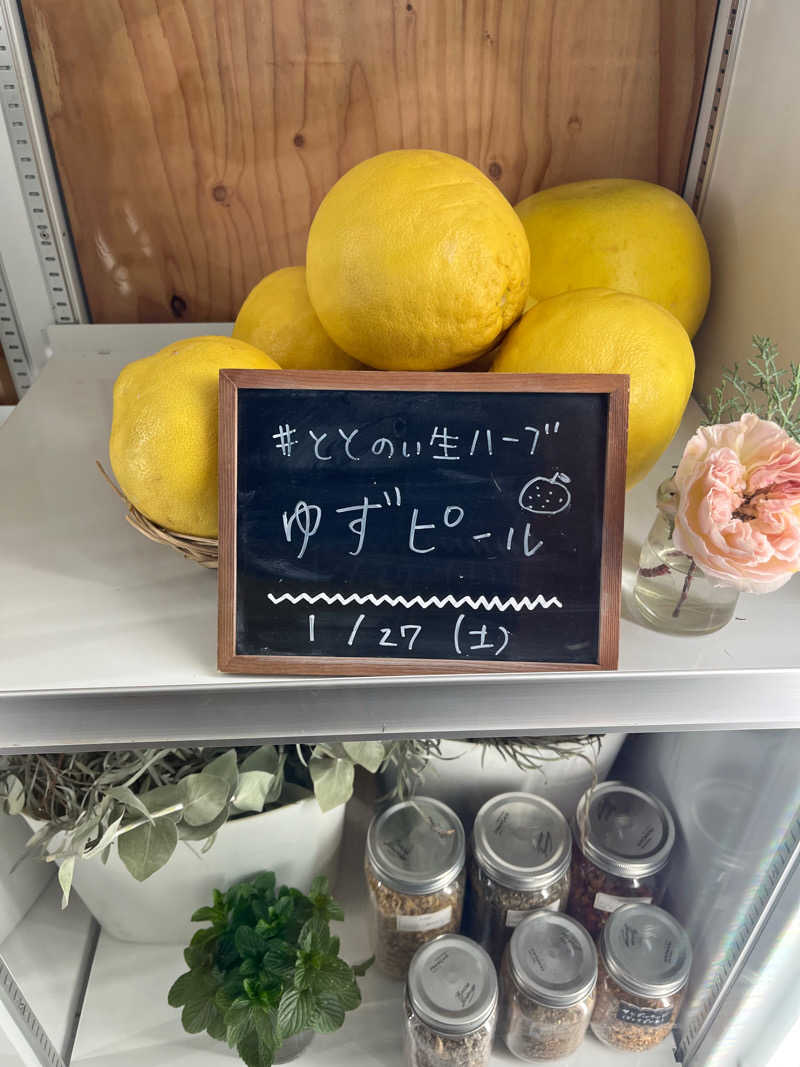 #ととのい生ハーブ
ゆずピール
1/27（土）